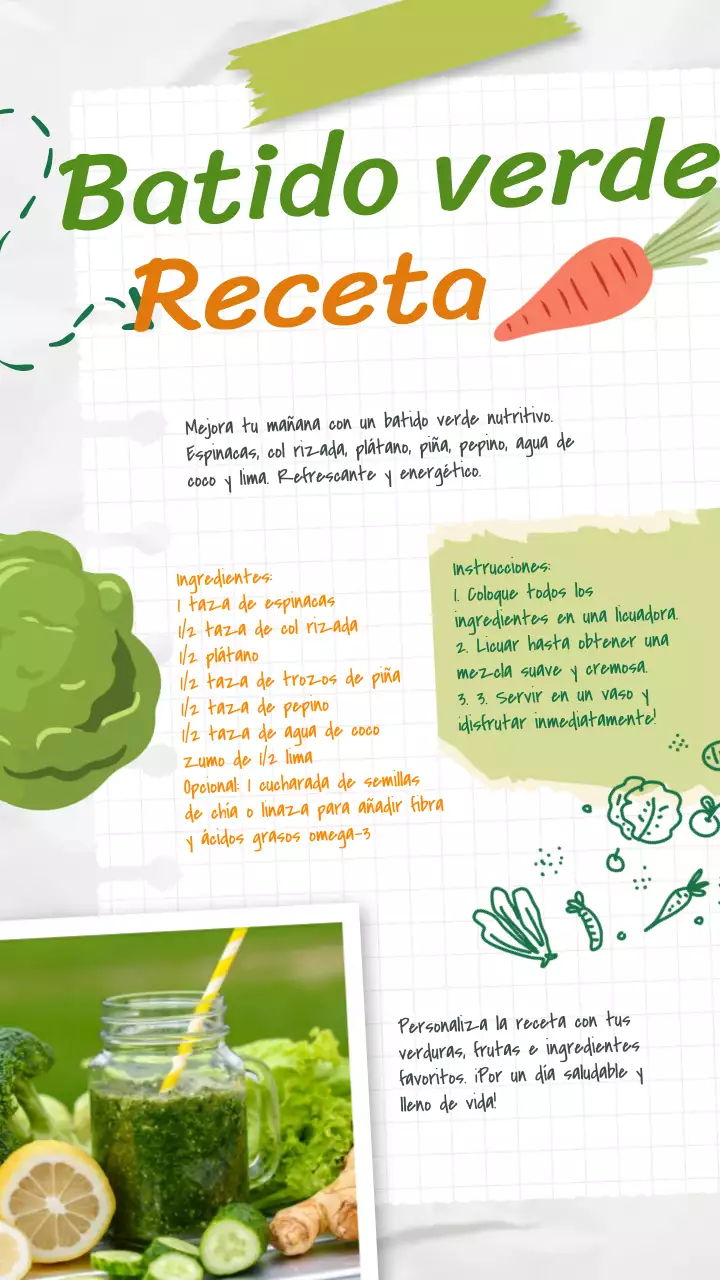 Batido verde
Receta
Mejora tu mañana con un batido verde nutritivo.
Espinacas, col rizada, plátano, piña, pepino, agua de
coco y lima. Refrescante y energético.
Ingredientes:
1 taza de espinacas
1/2 taza de col rizada
1/2 plátano
1/2 taza de trozos de piña
1/2 taza de pepino
1/2 taza de agua de coco
zumo de 1/2 lima
Opcional: 1 cucharada de semillas
de chía o linaza para añadir fibra
y ácidos grasos omega-3
Instrucciones:
1. Coloque todos los
ingredientes en una licuadora.
2. Licuar hasta obtener una
mezcla suave y cremosa.
3. 3. Servir en un vaso y
¡disfrutar inmediatamente!
Personaliza la receta con tus
verduras, frutas e ingredientes
favoritos. ¡Por un día saludable y
lleno de vida!